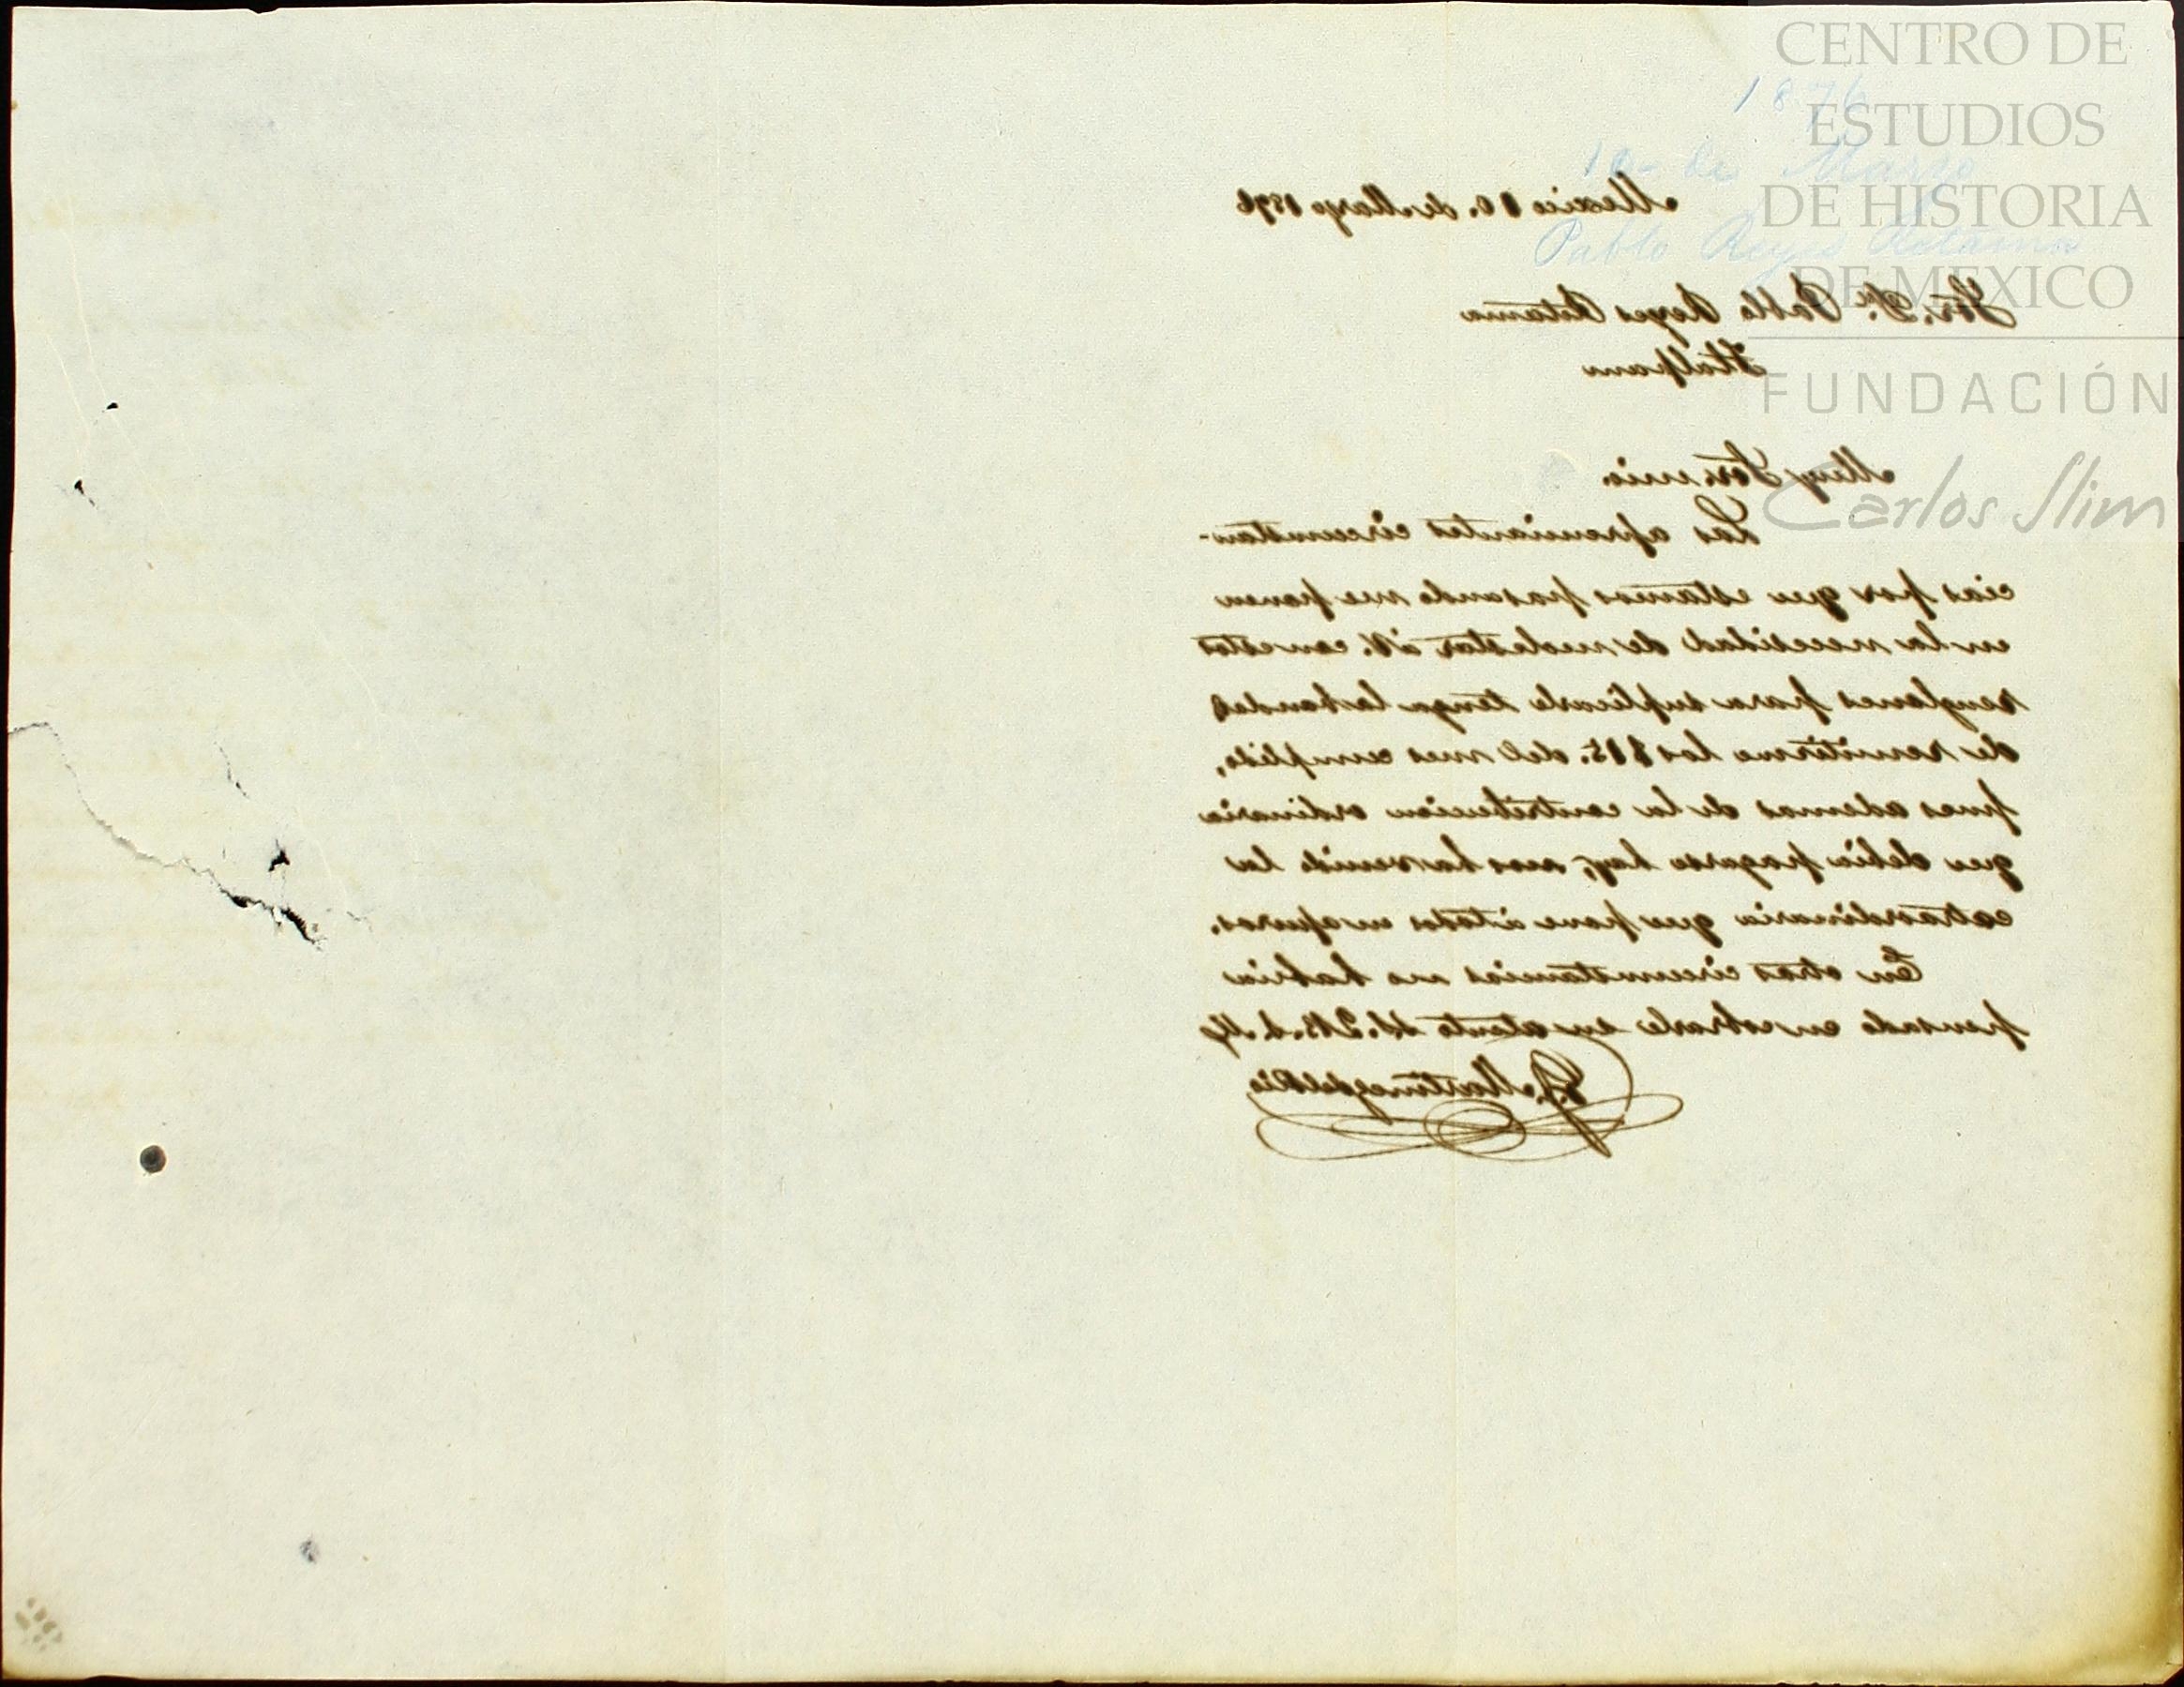 CENTRO DE
ESTUDIOS
DE HISTORIA
DE MEXICO
FUNDACIÓN
Carlos Slim
1876
10 de Marzo
Pablo Reyes Retana
Mexico 10. de Marzo 1876
Sor. Dn. Pablo Reyes Retana
Tlalpam
Muy Sor. mio.
Las apremiantes circunstan-
cias por que estamos pasando me ponen
en la necesidad de molestar á V. con estos
renglones para suplicarle tenga la bondad
de remitirme los $15. del mes cumplido,
pues ademas de la contribucion ordinaria
que debia pagarse hoy, nos ha venido la
extraordinaria que pone á todos en apuros.
En otras circunstancias no habria
pensado en cobrarle su atento S.S. Q.B.S.M.
P. Martinez del Rio